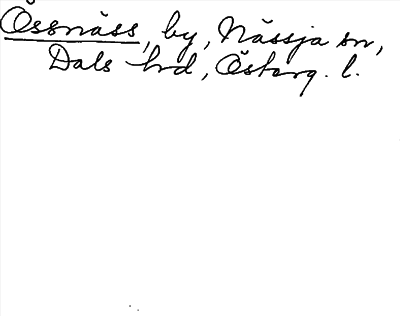 Össnäss, by, Nässja sn,
Dals hd, Österg. l.